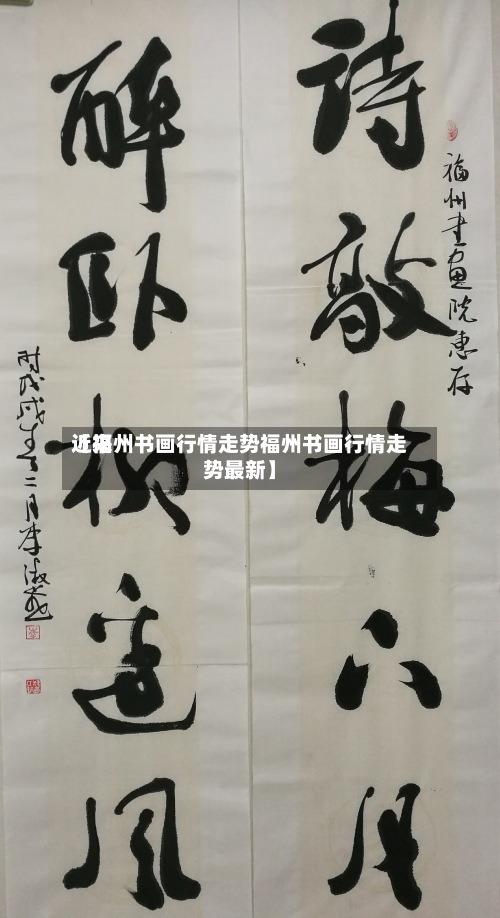 詩敲梅下月
福州書畫院惠存
醉卧柳邊風
时戊戌年二月李淑
近期福州书画行情走势福州书画行情走
势最新】